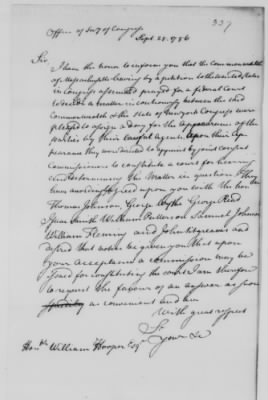 337
Office of Secy of Congress
Sept 28. 1786
Sir
I have the honor to inform you that the commonwealth
of Massachusetts having by a petition to the United States
in Congress assembled prayed for a federal Court
to decide a matter in controversy between the said
Commonwealth & the State of New york Congress were
pleased to assign a day for the Appearance of the
parties by their lawful agents. Upon their Ap-
pearance they were directed to appoint by joint consent
Commissioners to constitute a court for hearing
and determining the Matter in question. They
have accordingly agreed upon you with the honble
Thomas Johnson, George Wythe George Read
Isaac Smith William Patterson Samuel Johnson
William Fleming and John Sitgreaves and
desired that notice be given you that upon
your acceptance a commission may be
issued for constituting the court. I am therefore
to request the favour of an answer as soon
as convenient and
With great respect
Sr
Your &c
Honble William Hooper Esqr